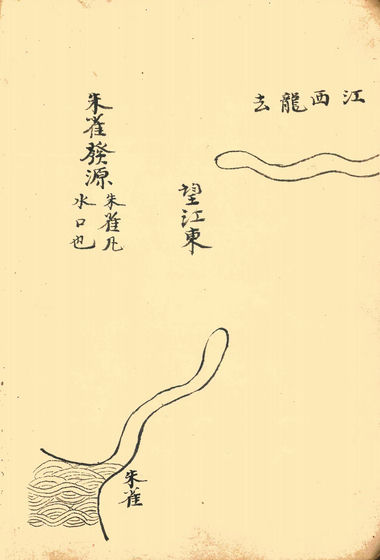 江西龍去
望江東
朱雀發源
朱雀凡
水口也
朱雀